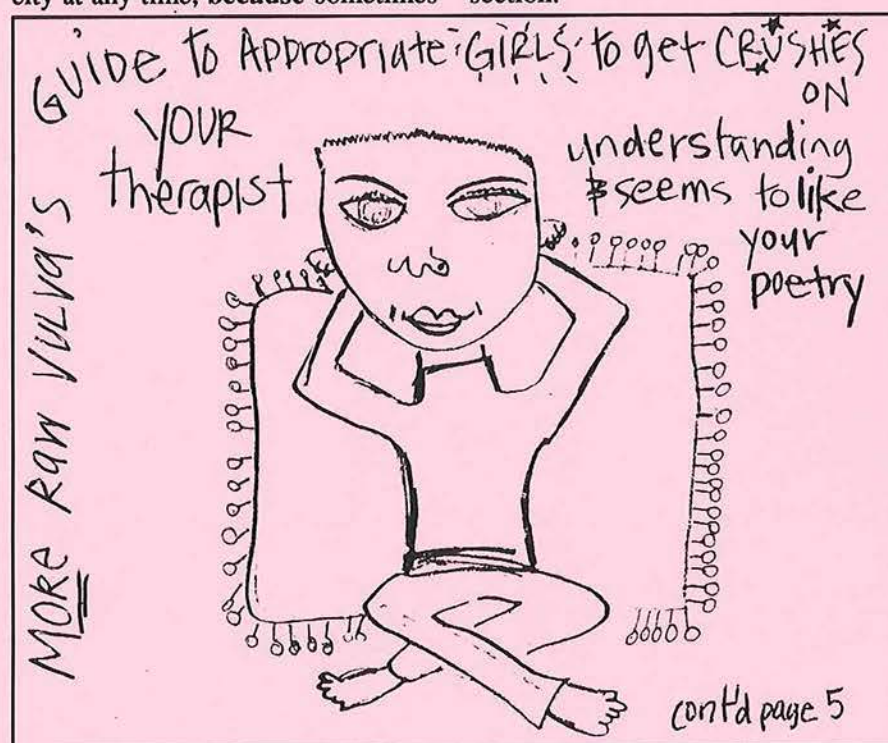 city at any time, because sometimes section.
MORE RAW VULVA'S
GUIDE to APPropriATE GIRLS to get CRUSHES
ON
YOUR
therapist
understanding
& seems to like
your
poetry
cont'd page 5